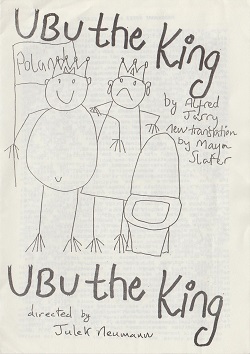 UBU the King
Poland
by Alfred
Jarry
new translation
by Maya
Slater
UBU the King
directed by
Julek Neumann